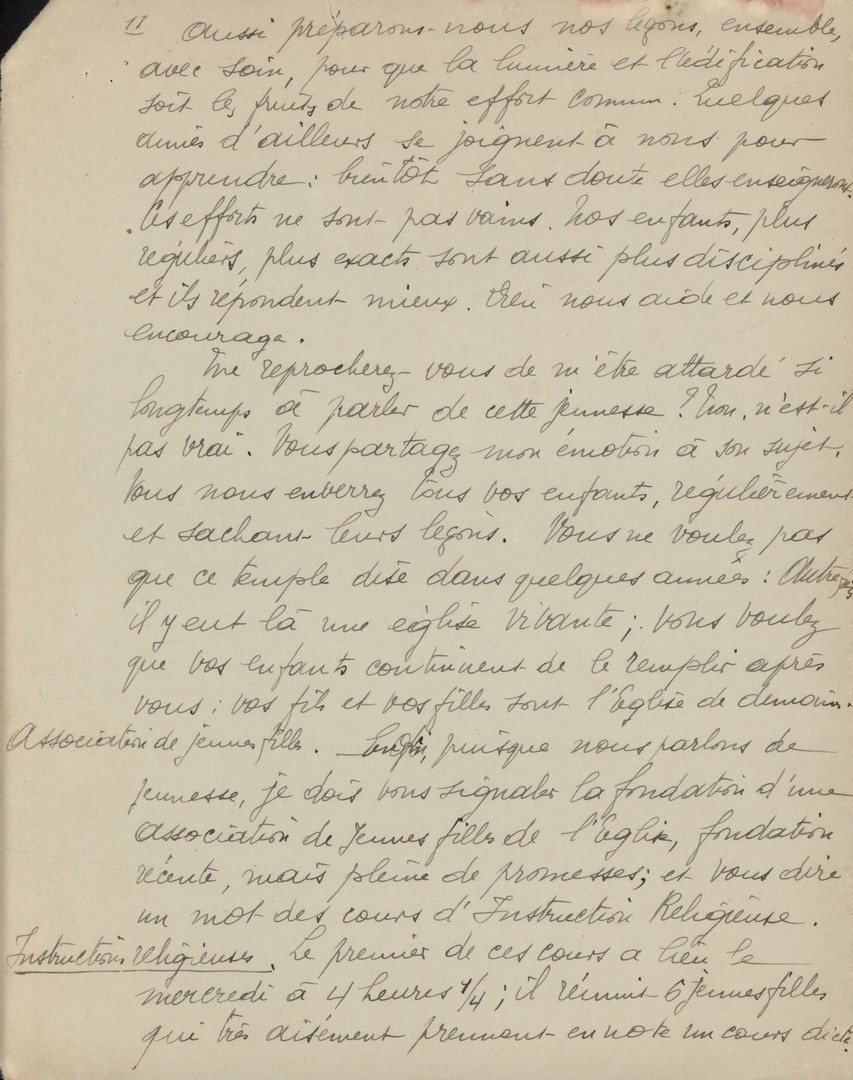 11 Aussi préparons-nous nos leçons, ensemble,
avec soin, pour que la lumière et l'édification
soit les fruits de notre effort commun. Quelques
amies d'ailleurs se joignent à nous pour
apprendre : bientôt sans doute elles enseigneront.
Ces efforts ne sont pas vains. Nos enfants, plus
réguliers, plus exacts sont aussi plus disciplinés
et ils répondent mieux. Dieu nous aide et nous
encourage.
Me reprocherez-vous de m'être attardé si
longtemps à parler de cette jeunesse ? Non, n'est-il
pas vrai. Vous partagez mon émotion à son sujet.
Vous nous enverrez tous vos enfants, régulièrement
et sachant leurs leçons. Vous ne voulez pas
que ce temple dise dans quelques années : Autrefois
il y eut là une église vivante ; vous voulez
que vos enfants continuent de le remplir après
vous : vos fils et vos filles sont l'Eglise de demain.
Association de jeunes filles. Enfin, puisque nous parlons de
jeunesse, je dois vous signaler la fondation d'une
Association de Jeunes filles de l'Eglise, fondation
récente, mais pleine de promesses ; et vous dire
un mot des cours d'Instruction Religieuse.
Instructions religieuses. Le premier de ces cours a lieu le
mercredi à 4 heures 1/4 ; il réunit 6 jeunes filles
qui très aisément prennent en note un cours dicté.